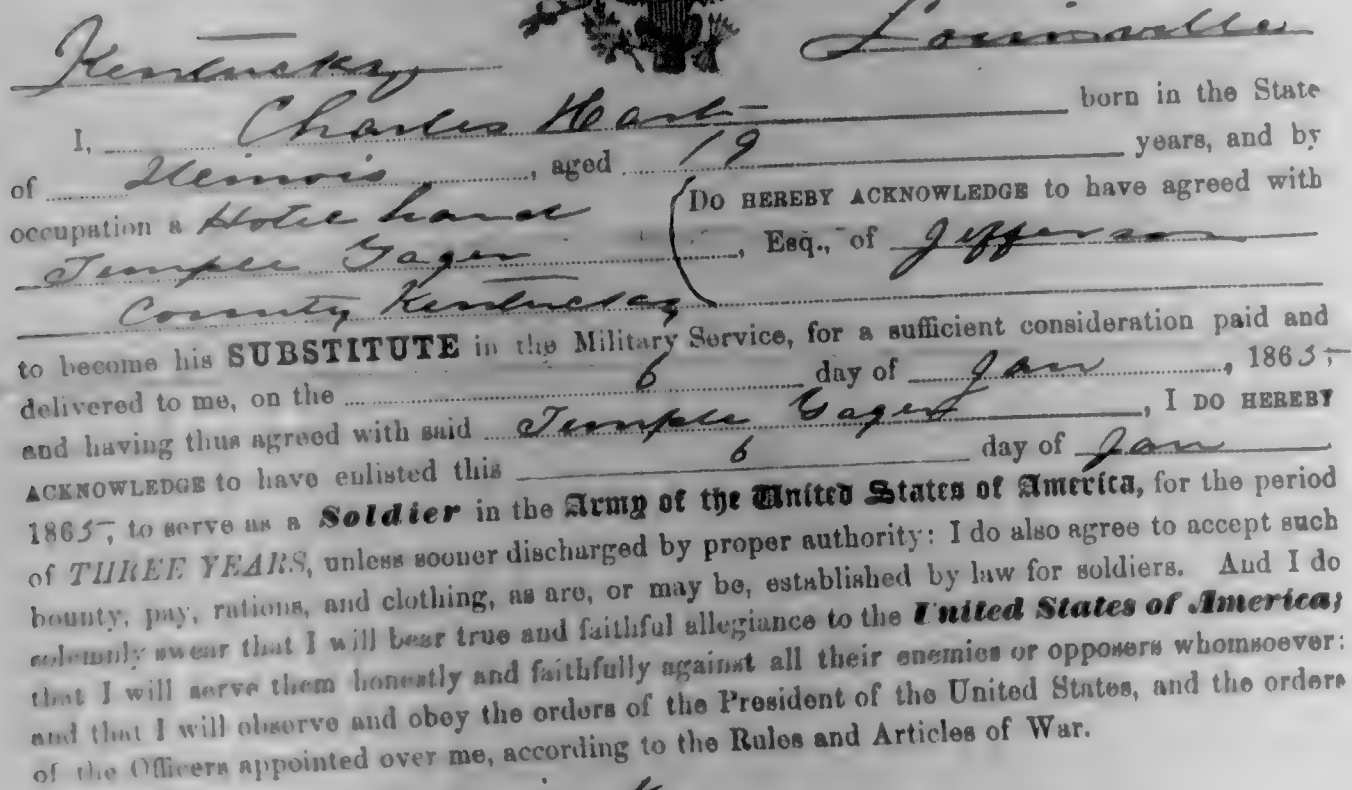 Kentucky Louisville
I, Charles Hart born in the State
of Illinois, aged 19 years, and by
occupation a Hotel hand Do HEREBY ACKNOWLEDGE to have agreed with
Temple Gager, Esq., of Jefferson
County Kentucky
to become his SUBSTITUTE in the Military Service, for a sufficient consideration paid and
delivered to me, on the 6 day of Jan, 1865;
and having thus agreed with said Temple Gager, I DO HEREBY
ACKNOWLEDGE to have enlisted this 6 day of Jan
1865, to serve as a Soldier in the Army of the United States of America, for the period
of THREE YEARS, unless sooner discharged by proper authority: I do also agree to accept such
bounty, pay, rations, and clothing, as are, or may be, established by law for soldiers. And I do
solemnly swear that I will bear true and faithful allegiance to the United States of America;
that I will serve them honestly and faithfully against all their enemies or opposers whomsoever:
and that I will observe and obey the orders of the President of the United States, and the orders
of the Officers appointed over me, according to the Rules and Articles of War.